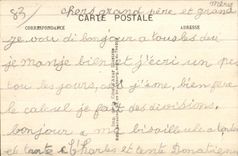 83/ chers grand père et grand
mère
CARTE POSTALE
CORRESPONDANCE ADRESSE
je vou di bonjour a tous les deu
je manje bien et j'écri un peu
tous les jours, et j'ème bien fère
le calcul je fait des divisions.
bonjour a ma bisaïeule a
et tante Charles et tente Donatienne